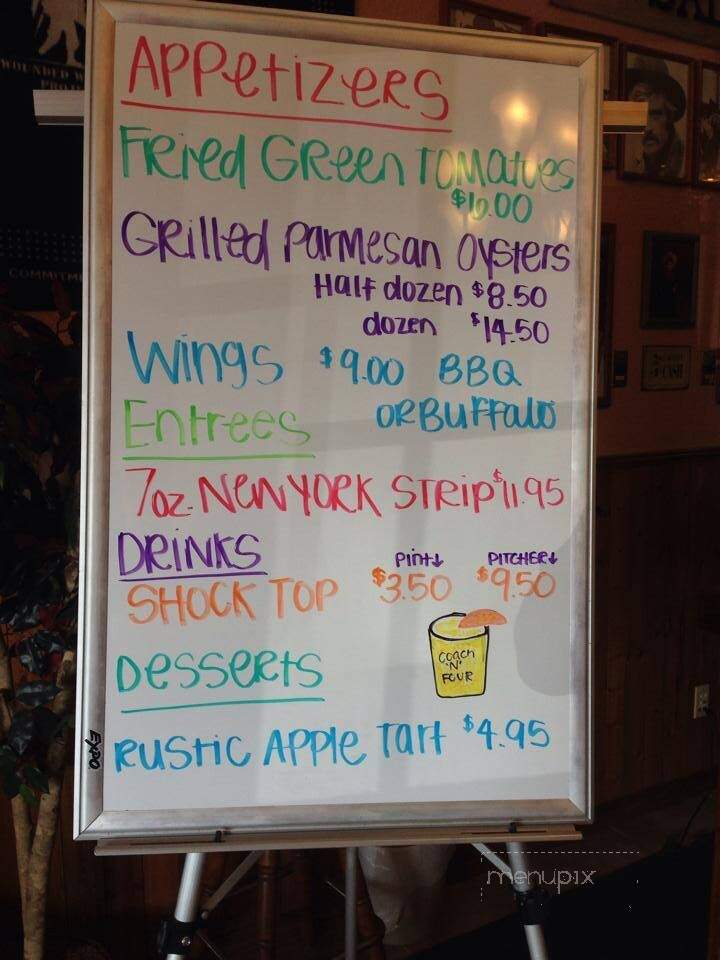 WOUNDED W
COMMITM
APPetizers
FRied GReen TOMatoes
$6.00
GRilled Parmesan Oysters
Half dozen $8.50
dozen $14.50
Wings $9.00 BBQ
OR BUFFalo
Entrees
7oz. NewYORK STRip $11.95
DRINKS
Pint↓ PITCHER↓
SHOCK TOP $3.50 $9.50
Coach
'N'
FOUR
Desserts
RUStic APPle Tart $4.95
EXPO
menupix